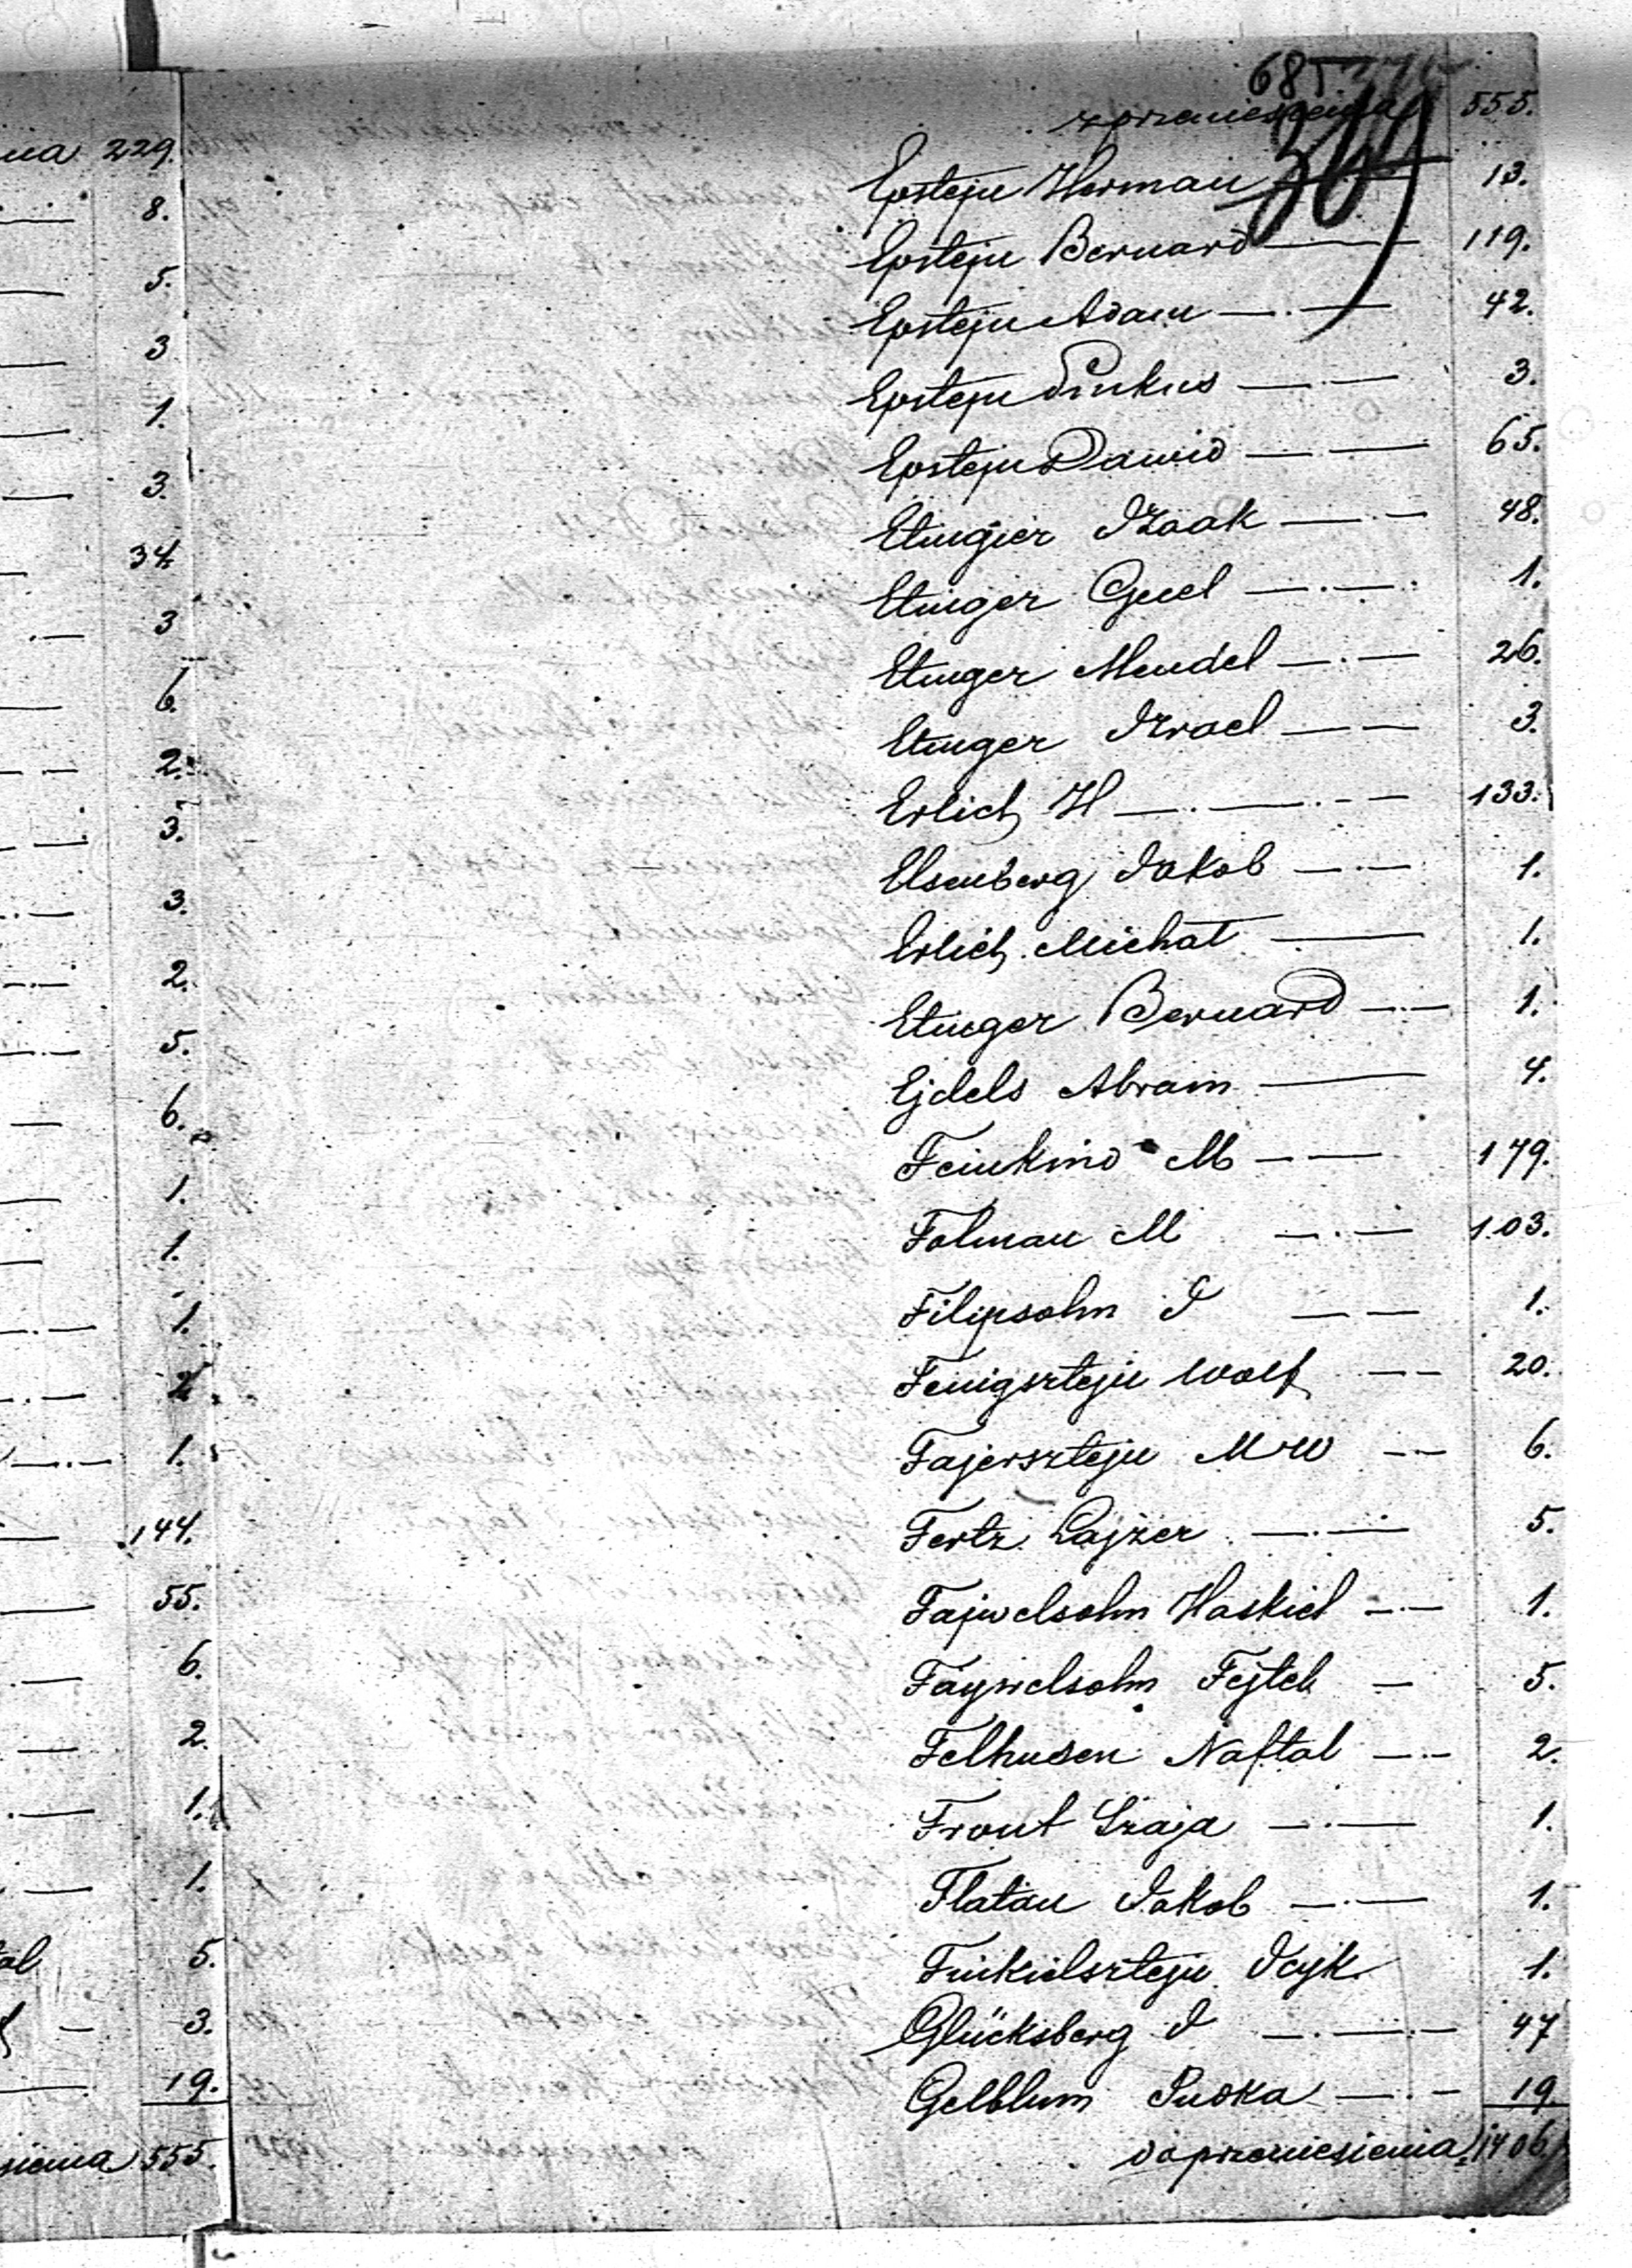 685
309
z przeniesienia 555.
Epstejn Herman 13.
Epstejn Bernard 119.
Epstejn Adam 42.
Epstejn Pinkus 3.
Epstejn Dawid 65.
Etingier Izaak 48.
Etinger Gecel 1.
Etinger Mendel 26.
Etinger Izrael 3.
Erlich H 133.
Elsenberg Jakob 1.
Erlich Michał 1.
Etinger Bernard 1.
Ejdels Abram 4.
Feinkind M 179.
Folman M 103.
Filipsohn J 1.
Fenigsztejn Wolf 20.
Fajersztejn M W 6.
Fertz Lajzer 5.
Fajwelsohn Haskiel 1.
Fajwelsohn Fejtel 5.
Felhusen Naftal 2.
Front Szaja 1.
Flatau Jakob 1.
Finkielsztejn Icyk 1.
Glücksberg J 47
Gelblum Judka 19.
do przeniesienia 1406
229.
8.
5.
3
1.
3.
34.
3
6.
2.
3.
3.
2.
5.
6.
1.
1.
1.
2
1.
144.
55.
6.
2.
1.
1.
5.
3.
19.
555.